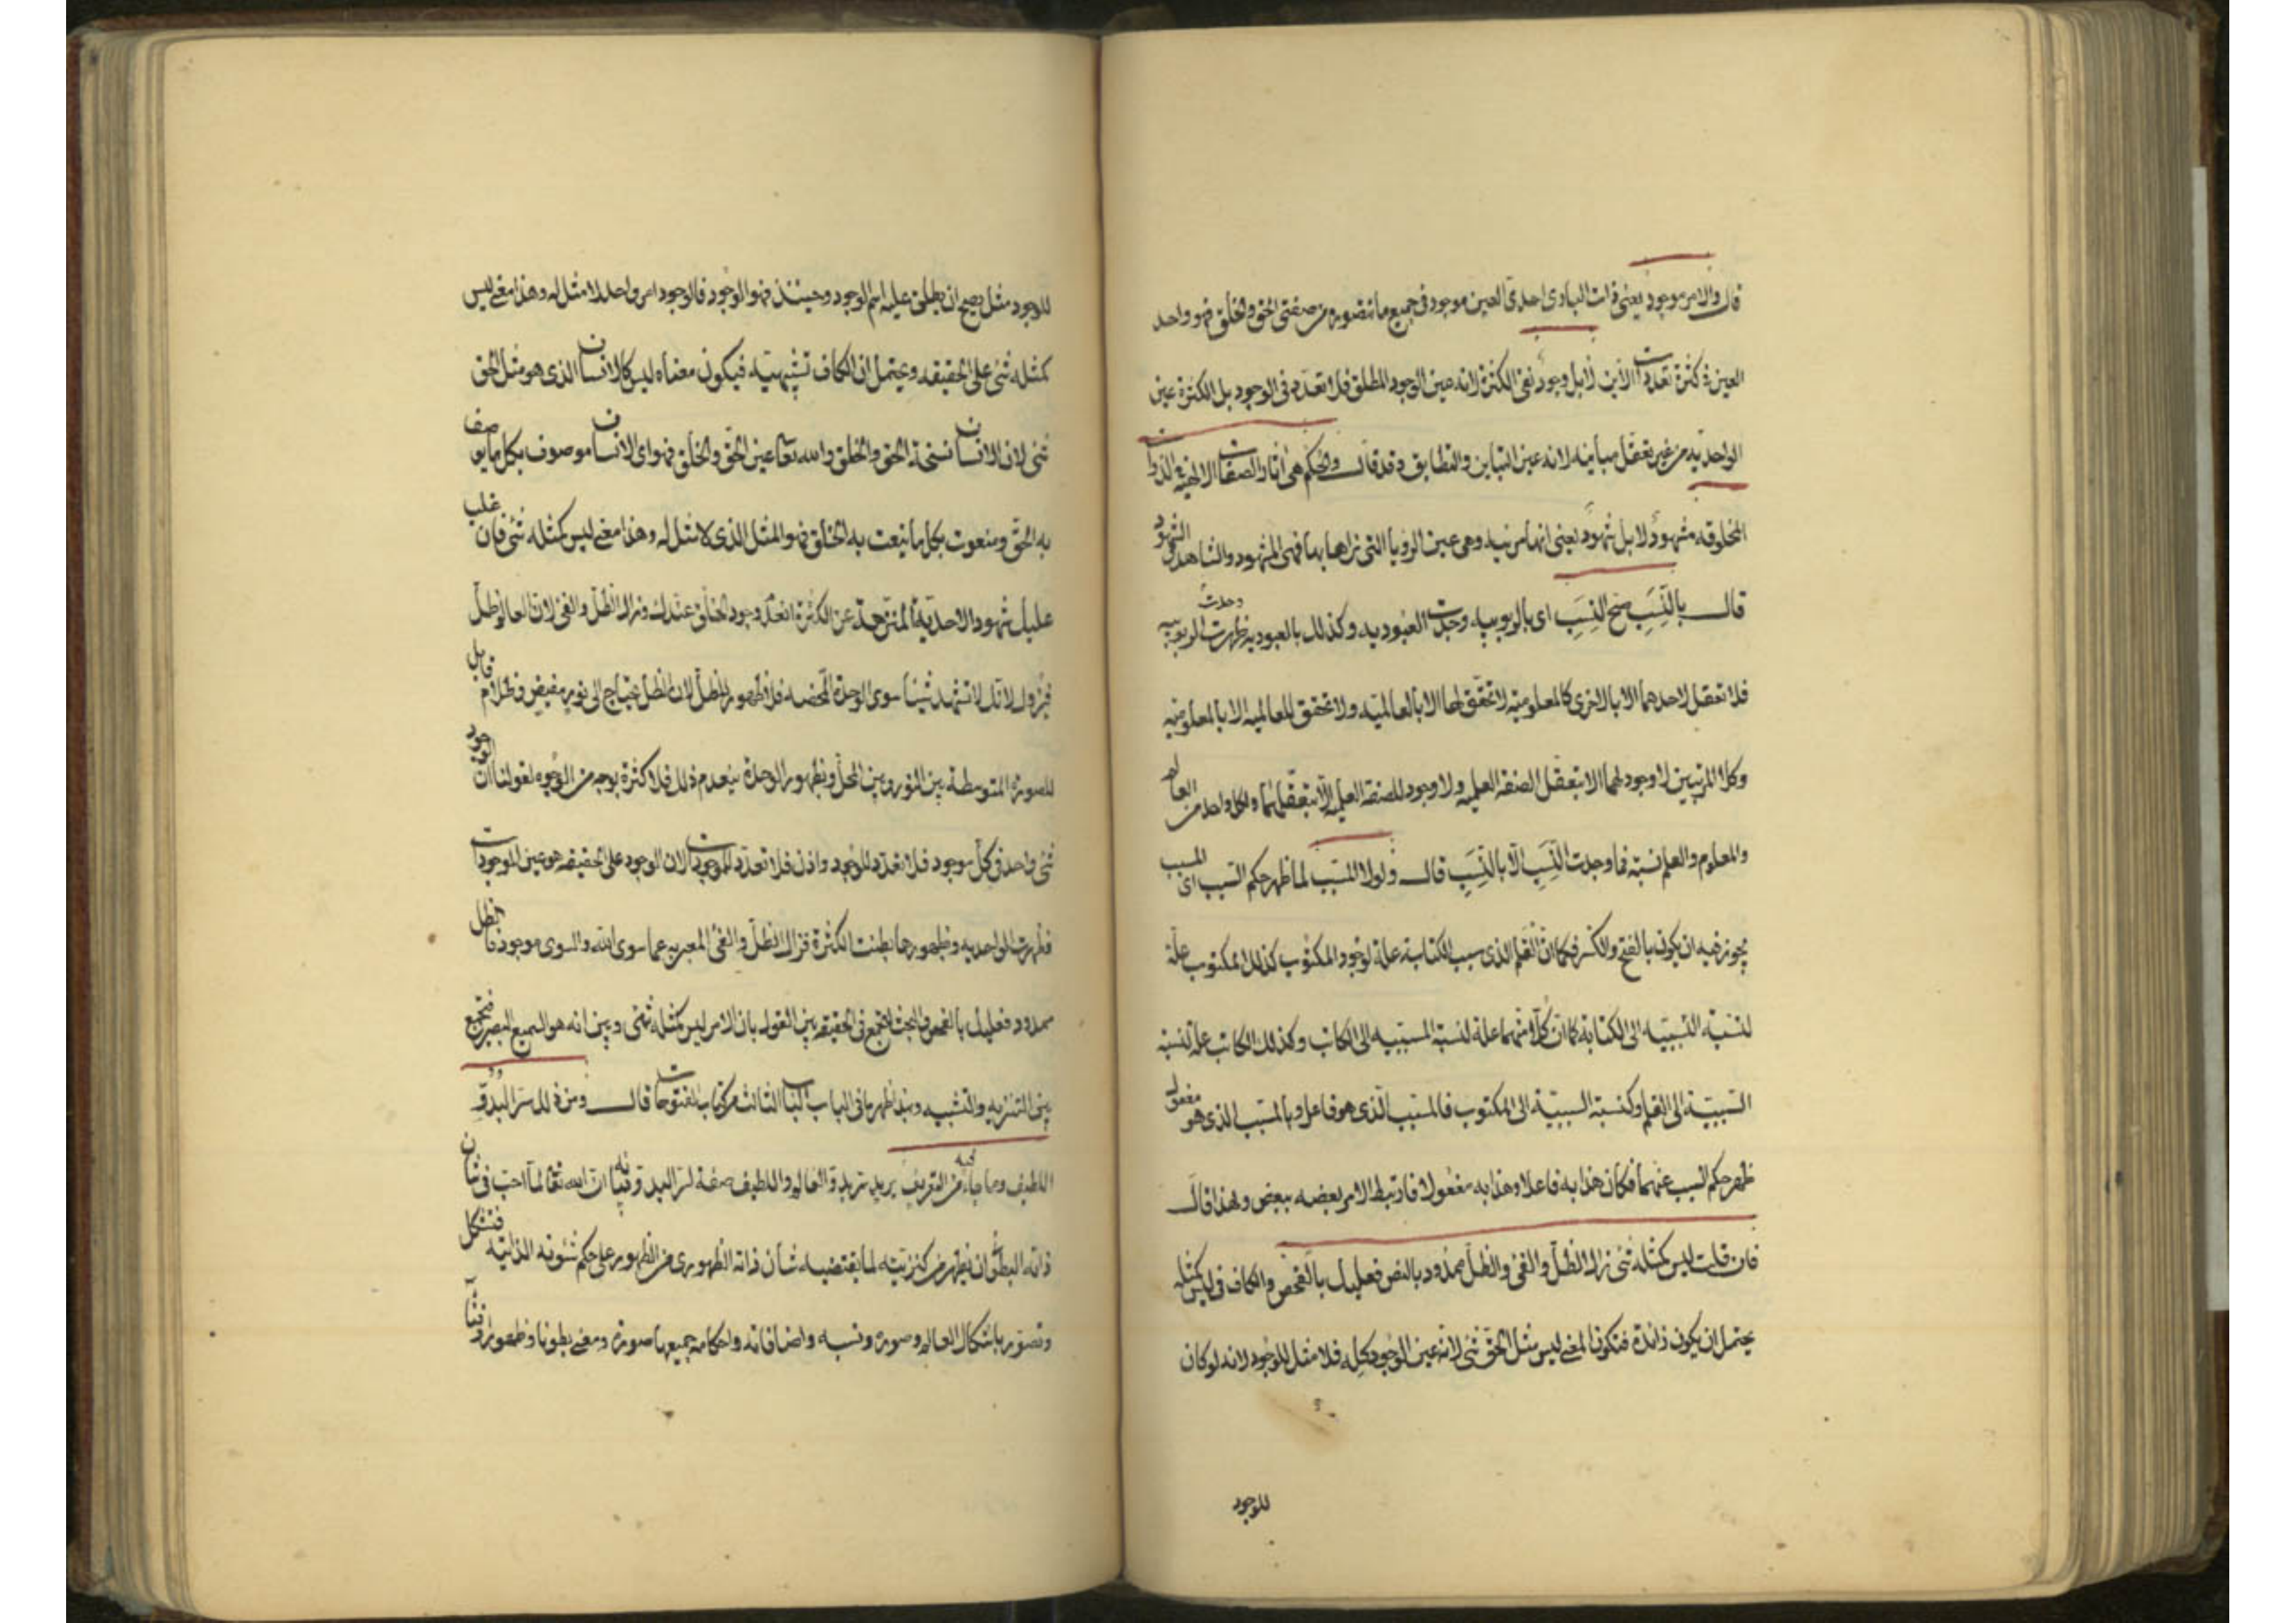 قال والامر موجود يعني ذات الباري احدي العين موجود في جميع ما تتصوره من صفتي الحق والخلق فهو واحد
العين في كثرة تعددات الأين لا بل وجود نفي الكثرة لانه عين الوجود المطلق فلا تعدد في الوجود بل الكثرة عين
الواحديه من غير تعقل مباينه لانه عين التباين والتطابق وقد قال والحكم هي اثار الصفات الالهية في الذوات
المخلوقه مشهود لا بل شهود يعني انها مرئيه وهي عين الرويا التي نراها بها فهي المشهود والشاهد والشهود
قال بالنِّسَب صح النِسَب اي بالربوبيه وجدت العبوديه وكذلك بالعبوديه ظهرت وحدت الربوبيه
فلا تعقل لاحدهما الا بالاخرى كالمعلوميه لا تحقق لها الا بالعالميه ولا تحقق للعالميه الا بالمعلوميه
وكلا المرتبتين لا وجود لهما الا بتعقل الصفه العلميه ولا وجود للصفه العلميه الا بتعقلهما ولكل واحد من العالم
والمعلوم والعلم نسبة فما وجدت النِّسَب الا بالنِّسَب قال ولولا المسبب لما ظهر حكم السبب اي المسبب
يجوز فيه ان يكون بالفتح والكسر فكما ان القلم الذي سبب الكتابة علة لوجود المكتوب كذلك المكتوب علة
لنسبة السببيه الى الكتابة كما ان كلا منهما علة لنسبة المسببيه الى الكاتب وكذلك الكاتب علة لنسبة
السببية الى القلم وكنسبة السببية الى المكتوب فالمسبب الذي هو فاعل وبالمسبب الذي هو مفعول
ظهر حكم السبب عنهما فكان هذا به فاعلا وهذا به مفعولا فارتبط الامر بعضه ببعض ولهذا قال
فان قلت ليس كمثله شئ زال الظل والفئ والظل ممدود بالنص فعليك بالفحص والكاف في ليس كمثله
يحتمل ان يكون زائدة فتكون المعنى ليس مثل الحق شئ لانه عين الوجود كله فلا مثل للوجود لانه لو كان
للوجود
للوجود مثل يصح ان يطلق عليه اسم الوجود وحينئذ فهو الوجود فالوجود امر واحد لا مثل له وهذا معنى ليس
كمثله شئ على الحقيقه ويحتمل ان الكاف تشبيهيه فيكون معناه ليس كالانسان الذي هو مثل الحق
شئ لان الانسان نسخة الحق والخلق والله تعالى عين الحق والخلق فهو اي الانسان موصوف بكل ما يوصف
به الحق ومنعوت بكل ما ينعت به الخلق فهو المثل الذي لا مثل له وهذا معنى ليس كمثله شئ فان غلب
عليك شهود الاحدية المنزهة عن الكثرة انعدم وجود الخلق عندك وزال الظل والفئ لان العالم ظل
فيزول لانك لا تشهد شيئا سوى الوحدة المحضه فلا ظهور للظل لان الظل يحتاج الى نور مفيض وظلام قابل
للصورة المتوسطة بين النور وبين المحل وبظهور الوحدة ينعدم ذلك فلا كثرة بوجه من الوجوه لقولنا ان الوجود
شئ واحد في كل موجود فلا تعدد للوجود واذن فلا تعدد للموجودات لان الوجود على الحقيقه هو عين الموجودات
فظهرت الواحديه وبظهورها بطنت الكثرة فزال الظل والفئ المعبر به عما سوى الله والسوى موجود فالظل
ممدود فعليك بالفحص والبحث لتجمع في الحقيقه بين القول بان الامر ليس كمثله شئ وبين انه هو السميع البصير فتجمع
بين التنزيه والتشبيه في الباب الثالث من كتاب الفتوحات قال ومن ذلك سر البدو
اللطيف وما جاء فيه من التعريف يريد العالم واللطيف صفة لسر البدو ان الله تعالى لما احب في شان
ذاته البطون ان يظهر من كنزيته لما يقتضيه شأن ذاته الظهوري من الظهور على حكم شئونه الذاتيه فتشكل
وتصور باشكال العالم وصوره ونسبه واضافاته واحكامه جميعها صورة ومعنى بطونا وظهورا